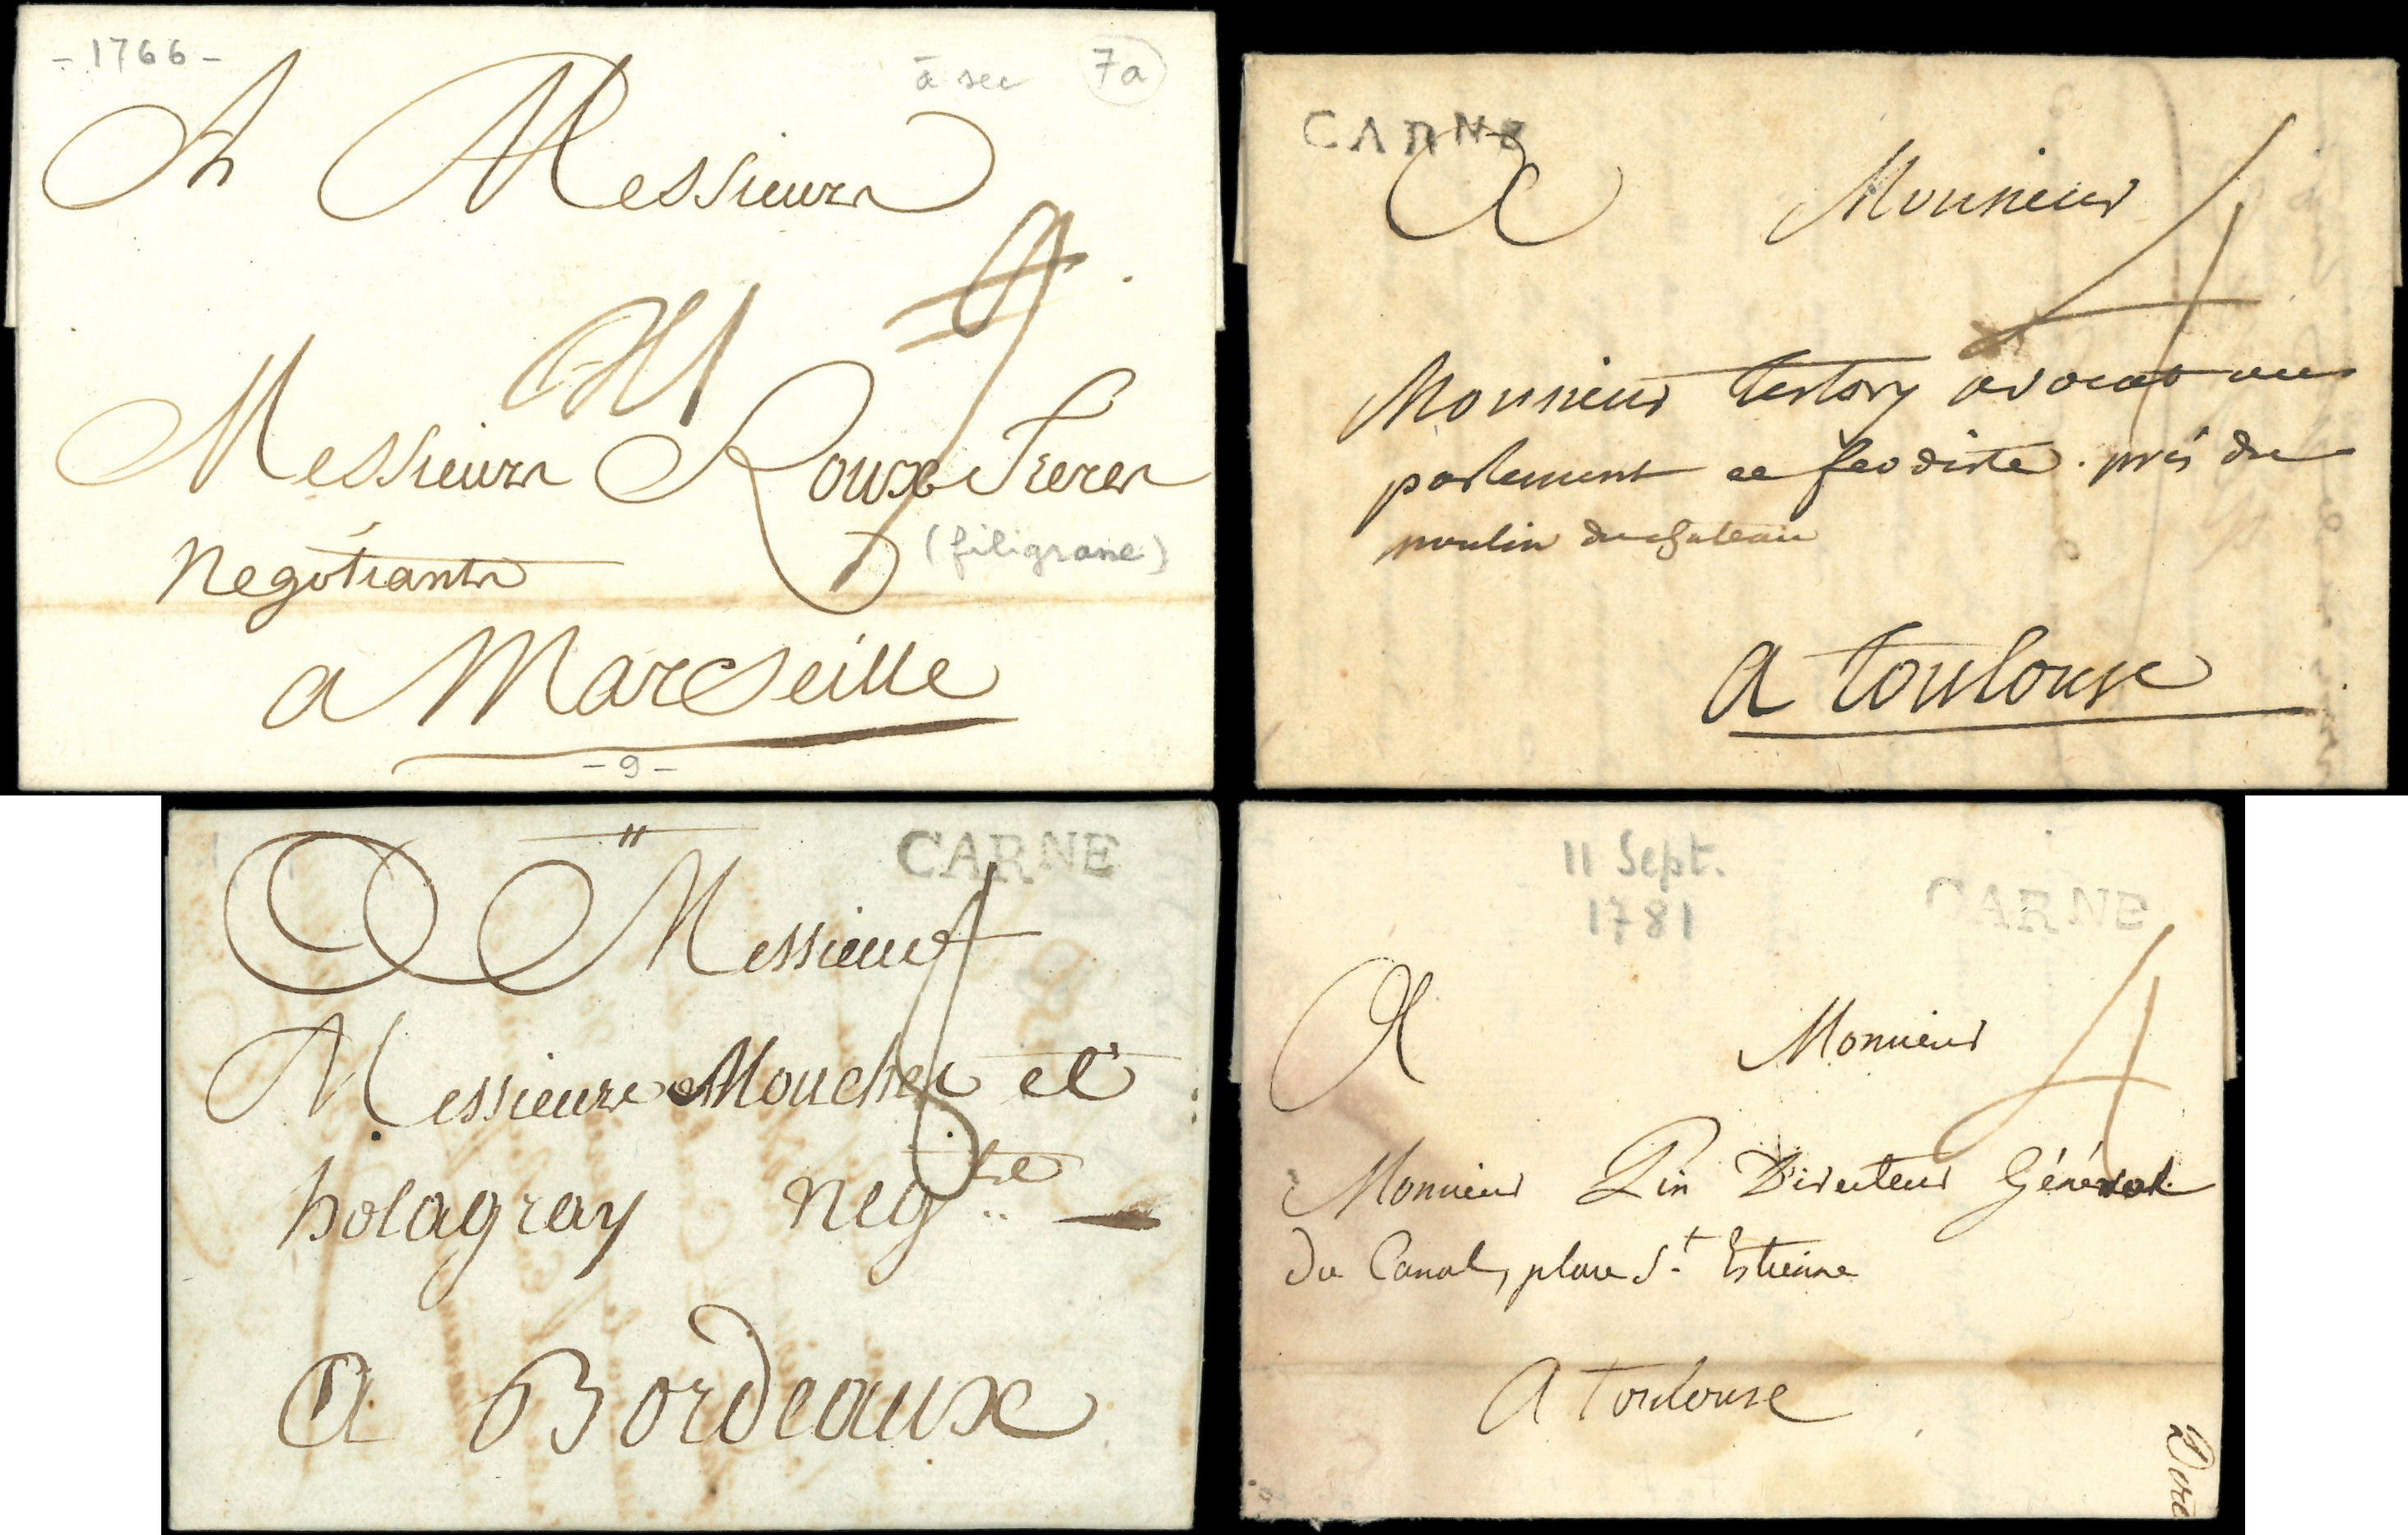 - 1766 -
à sec
7a
A Messieurs
Messieurs Roux Freres
(filigrane)
Negotiants
a Marseille
- 9 -
CARNE
A Monsieur
4
Monsieur tertory avocat au
parlement et feodiste. prés du
moulin du chateau
A toulouse
CARNE
A Messieurs
Messieurs Mouchet et
holagray neg.ts
A Bordeaux
11 Sept.
1781
CARNE
A Monsieur
4
Monsieur Pin Directeur Général
du Canal, place St. Estienne
A toulouse